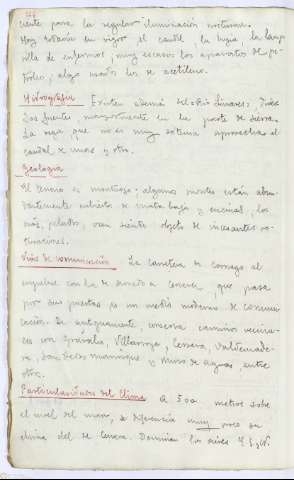 ciente para la regular iluminación nocturna.
Hoy todavía en vigor el candil, la bujía, la lampa
rilla de enfermos; muy escasos los aparatos de pe-
tróleo; algo menos los de acetileno.
Hidrografía Existen además del río Linares: Tres
Las fuentes, mayormente en la parte de sierra.
La vega que no es muy extensa aprovecha el
caudal de unos y otro.
Geología
El terreno es montañoso; algunos montes están abun-
dantemente cubiertos de mata baja y encinal; los
más, pelados, van siendo objeto de incesantes ro-
turaciones.
Vías de comunicación La carretera de Cornago al
empalme con la de Arnedo a Cervera, que pasa
por sus puertas es un medio moderno de comuni-
cación. De antiguamente, conserva caminos vecina-
les con Grávalos, Villarroya, Cervera, Valdemade-
ra, San Felices, Muro de Aguas, entre
otros.
Particularidades del Clima A 500 metros sobre
el nivel del mar, se diferencia muy poco su
clima del de Cervera. Dominan los aires